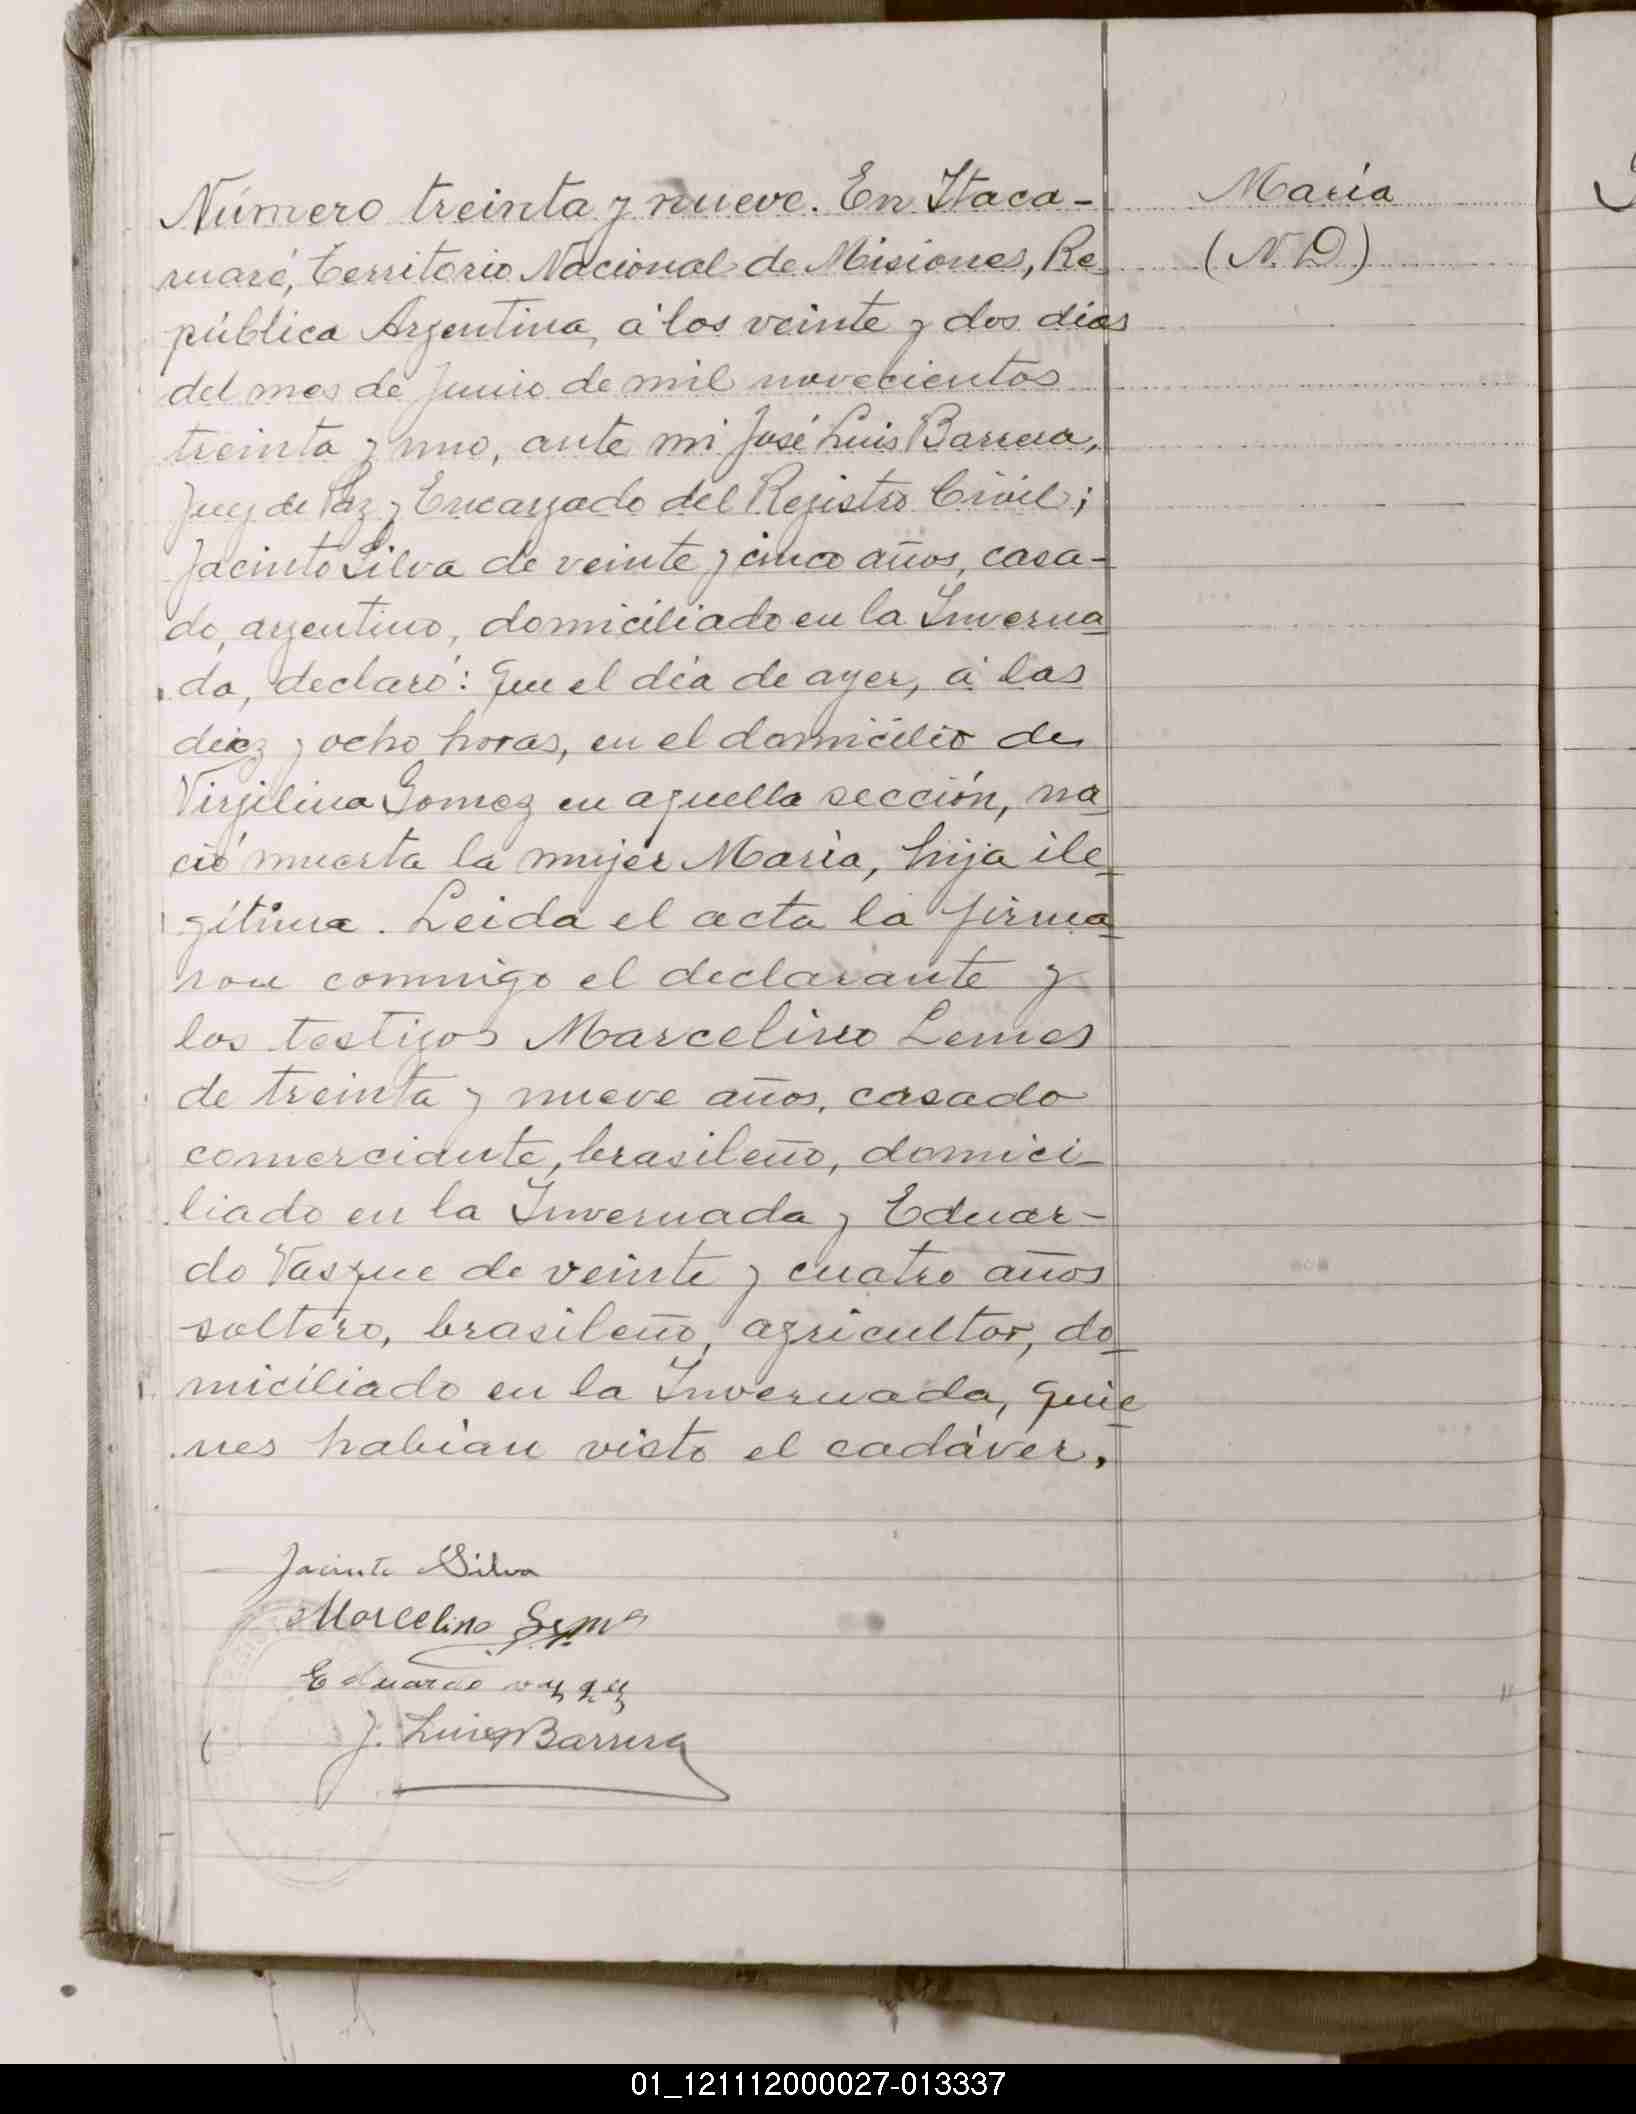 Número treinta y nueve. En Itaca-
ruaré, Territorio Nacional de Misiones, Re-
pública Argentina, á los veinte y dos dias
del mes de Junio de mil novecientos
treinta y uno, ante mi José Luis Barrera,
Juez de Paz y Encargado del Registro Civil;
Jacinto Silva de veinte y cinco años, casa-
do, argentino, domiciliado en la Inverna-
da, declaró: Que el día de ayer, á las
diez y ocho horas, en el domicilio de
Virjilina Gomez en aquella sección, na-
ció muerta la mujer María, hija ile-
gítima. Leida el acta la firma-
ron conmigo el declarante y
los testigos Marcelino Lemes
de treinta y nueve años, casado
comerciante, brasileño, domici-
liado en la Invernada y Eduar-
do Vasque de veinte y cuatro años
soltero, brasileño, agricultor, do-
miciliado en la Invernada, quie-
nes habían visto el cadáver.
María
(N. D)
Jacinto Silva
Marcelino
Eduardo
J. Luis Barrera
01_121112000027-013337